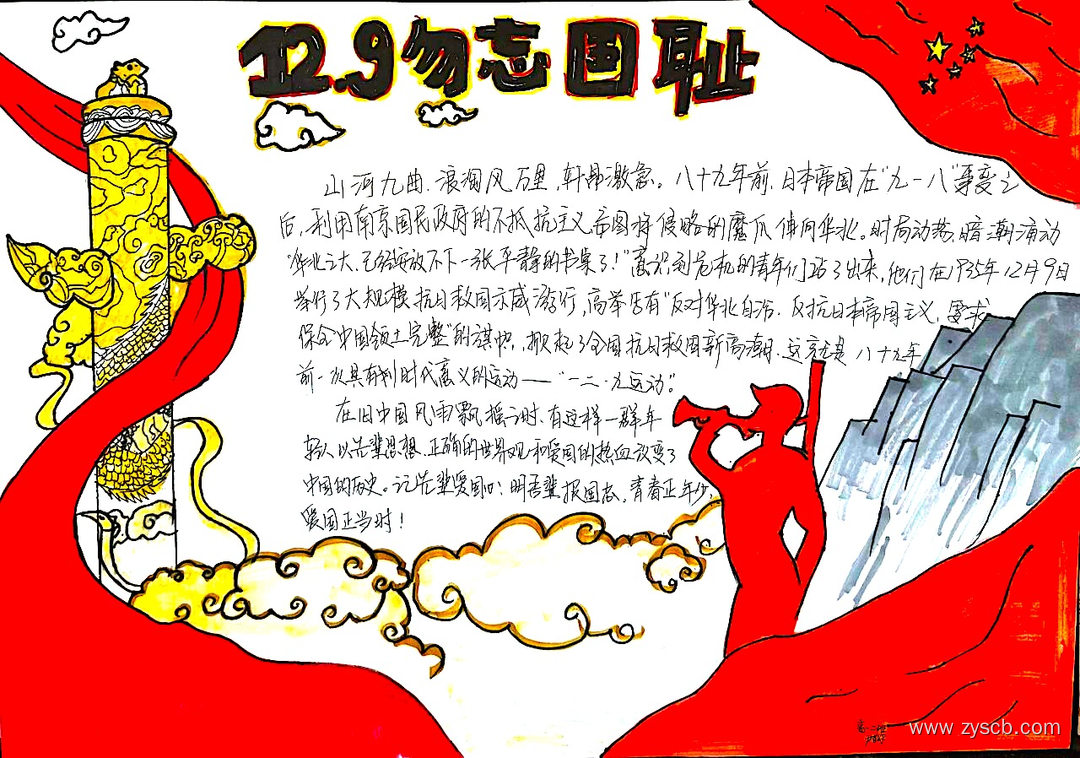 12.9勿忘国耻
山河九曲，浪淘风万里，轩昂激急。八十九年前，日本帝国在“九一八”事变之
后，利用南京国民政府的不抵抗主义，妄图将侵略的魔爪伸向华北。时局动荡，暗潮涌动
“华北之大，已经安放不下一张平静的书桌了！”意识到危机的青年们站了出来，他们在1935年12月9日
举行了大规模抗日救国示威游行，高举写有“反对华北自治，反抗日本帝国主义，要求
保全中国领土完整”的旗帜，掀起了全国抗日救国新高潮，这就是八十九年
前一次具有划时代意义的运动——“一二·九运动”。
在旧中国风雨飘摇之时，有这样一群年
轻人以先辈思想、正确的世界观和爱国的热血改变了
中国的历史。记先辈爱国心；明吾辈报国志，青春正年少，
爱国正当时！
www.zyscb.com